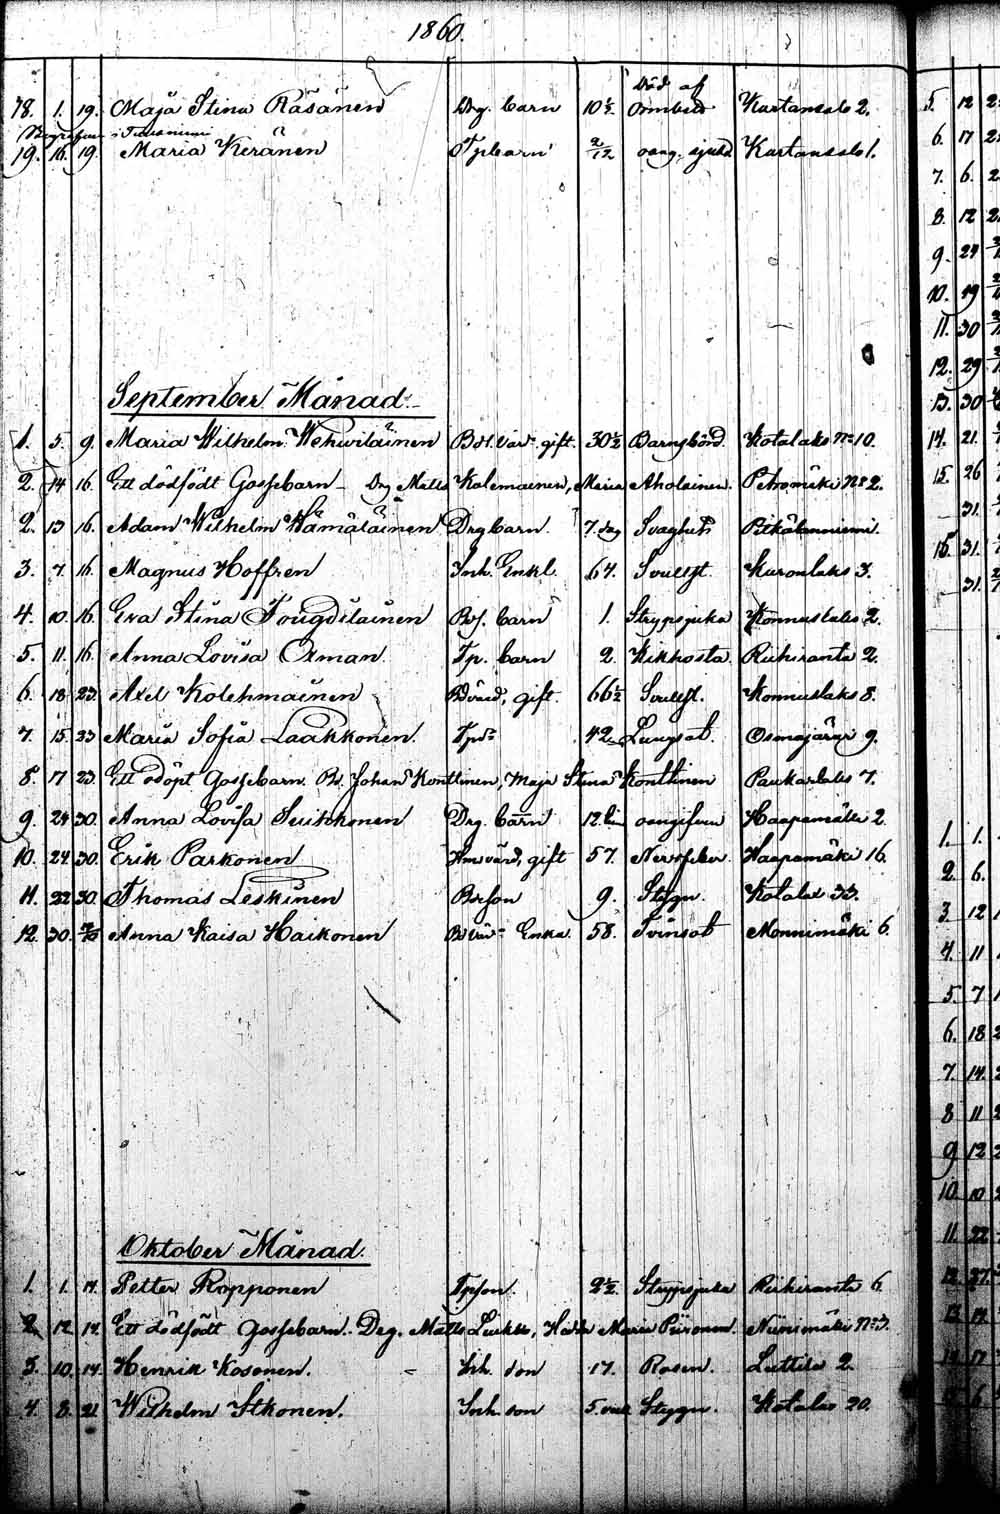 1860.
18. 1. 19. Maja Stina Räsänen Drg. barn 10 1/2 Död af Ormbett Kartansalo 2.
Begrafven i
19. 16. 19. Maria Keränen Tpbarn 2/12 oang. sjukd Kartansalo 1.
September Månad.
1. 5. 9. Maria Wilhelm. Wehwiläinen gift. 30 1/2 Barnsbörd. Kotalaks No 10.
2. 14 16. Ett dödfödt Gossebarn - Drg Matts Kolemainen, Maria Aholainen. Petromäki No 2.
2. 13 16. Adam Wilhelm Hämäläinen Drg barn. 7 dag Svaghet
3. 7. 16. Magnus Hoffren Inh. Enkl. 64. Svullst. Kuronlaks 3.
4. 10. 16. Eva Stina Fougdiläinen Bs. barn 1. Strypsjuka Konnuslaks 2.
5. 11. 16. Anna Lovisa Oxman. Tp. barn 2. Kikhosta. Riihiranta 2.
6. 18 23. Axel Kolehmainen Bdvärd, gift. 66 1/2 Svullst. Konnuslaks 8.
7. 15. 23 Maria Sofia Laakkonen. 42 Lungsot. Osmajärvi 9.
8. 17 23. Ett odöpt Gossebarn. Bs. Johan Konttinen, Maja Stina Konttinen Paukarlaks 7.
9. 24 30. Anna Lovisa Suihkonen Drg. barn 12 oangifven Haapamäki 2.
10. 24. 30. Erik Parkonen Hmvärd, gift 57. Nervfeber. Haapamäki 16.
11. 22 30. Thomas Leskinen Bsson 9. Stygn. Kotalax 33.
12. 30. 7/10 Anna Kaisa Haikonen Enka. 58. Tvinsot Monnimäki 6.
Oktober Månad.
1. 1. 14. Petter Ropponen Tpson. 2 1/2. Strypsjuka Riihiranta 6
2. 12. 14. Ett dödfödt Gossebarn. Drg. Matts Luukko, Maria Piironen. Niinimäki No 3.
3. 10. 14. Henrik Kosonen. Inh. son 17. Rosen. Luttila 2.
4. 8. 21 Wilhelm Itkonen. Inh. son 5. Stygn. Kotalax 20.
5. 12 2
6. 17 2
7. 6. 2
8. 12 2
9. 24
10. 19
11. 30
12. 29
13. 30
14. 21.
15. 26
31.
15. 31.
31.
1. 1.
2. 6.
3. 12
4. 11
5. 7
6. 18
7. 14.
8 11
9 12
10. 10
11. 22
12. 27.
13. 14.
14. 17
5. 6